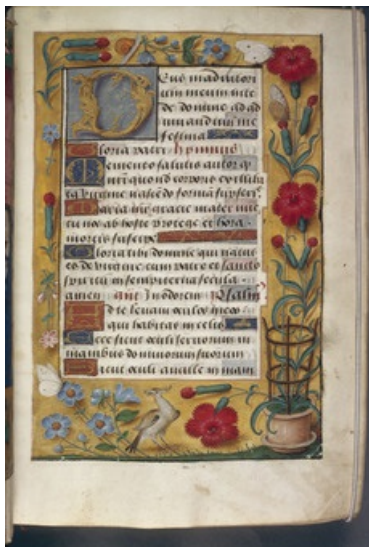 Deus in adiutori
um meum inte
de domine ad ad
iuuandum me
festina
Gloria patri hymnus
Memento salutis autor q
nr̄i quondā corporis ex illiba
ta virgine nascēdo formā sūpseris
Maria m̄r gracie mater mīe
tu nos ab hoste protege et hora
mortis suscipe
Gloria tibi domine qui natus
es de virgine cum patre et sancto
spiritu in sempiterna secula
amen an̄t In odorem Psalm
Ad te leuaui oculos meos
qui habitas in celis
Ecce sicut oculi seruorum in
manibus dominorum suorum
Sicut oculi ancille in mani